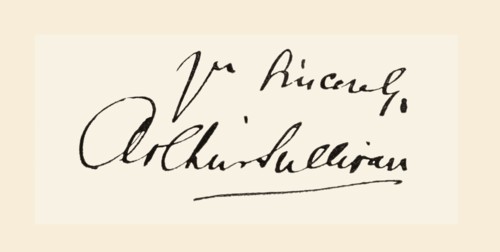 Yrs Sincerely,
Arthur Sullivan